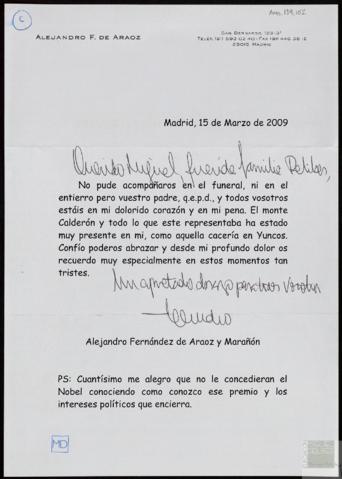 C
ALEJANDRO F. DE ARAOZ
SAN BERNARDO, 123-3º
28015 MADRID
Madrid, 15 de Marzo de 2009
Querido Miguel, querida familia Delibes,
No pude acompañaros en el funeral, ni en el
entierro pero vuestro padre, q.e.p.d., y todos vosotros
estáis en mi dolorido corazón y en mi pena. El monte
Calderón y todo lo que este representaba ha estado
muy presente en mi, como aquella cacería en Yuncos.
Confío poderos abrazar y desde mi profundo dolor os
recuerdo muy especialmente en estos momentos tan
tristes.
Un apretado abrazo para todos vosotros
Alejandro Fernández de Araoz y Marañón
PS: Cuantísimo me alegro que no le concedieran el
Nobel conociendo como conozco ese premio y los
intereses políticos que encierra.
MD